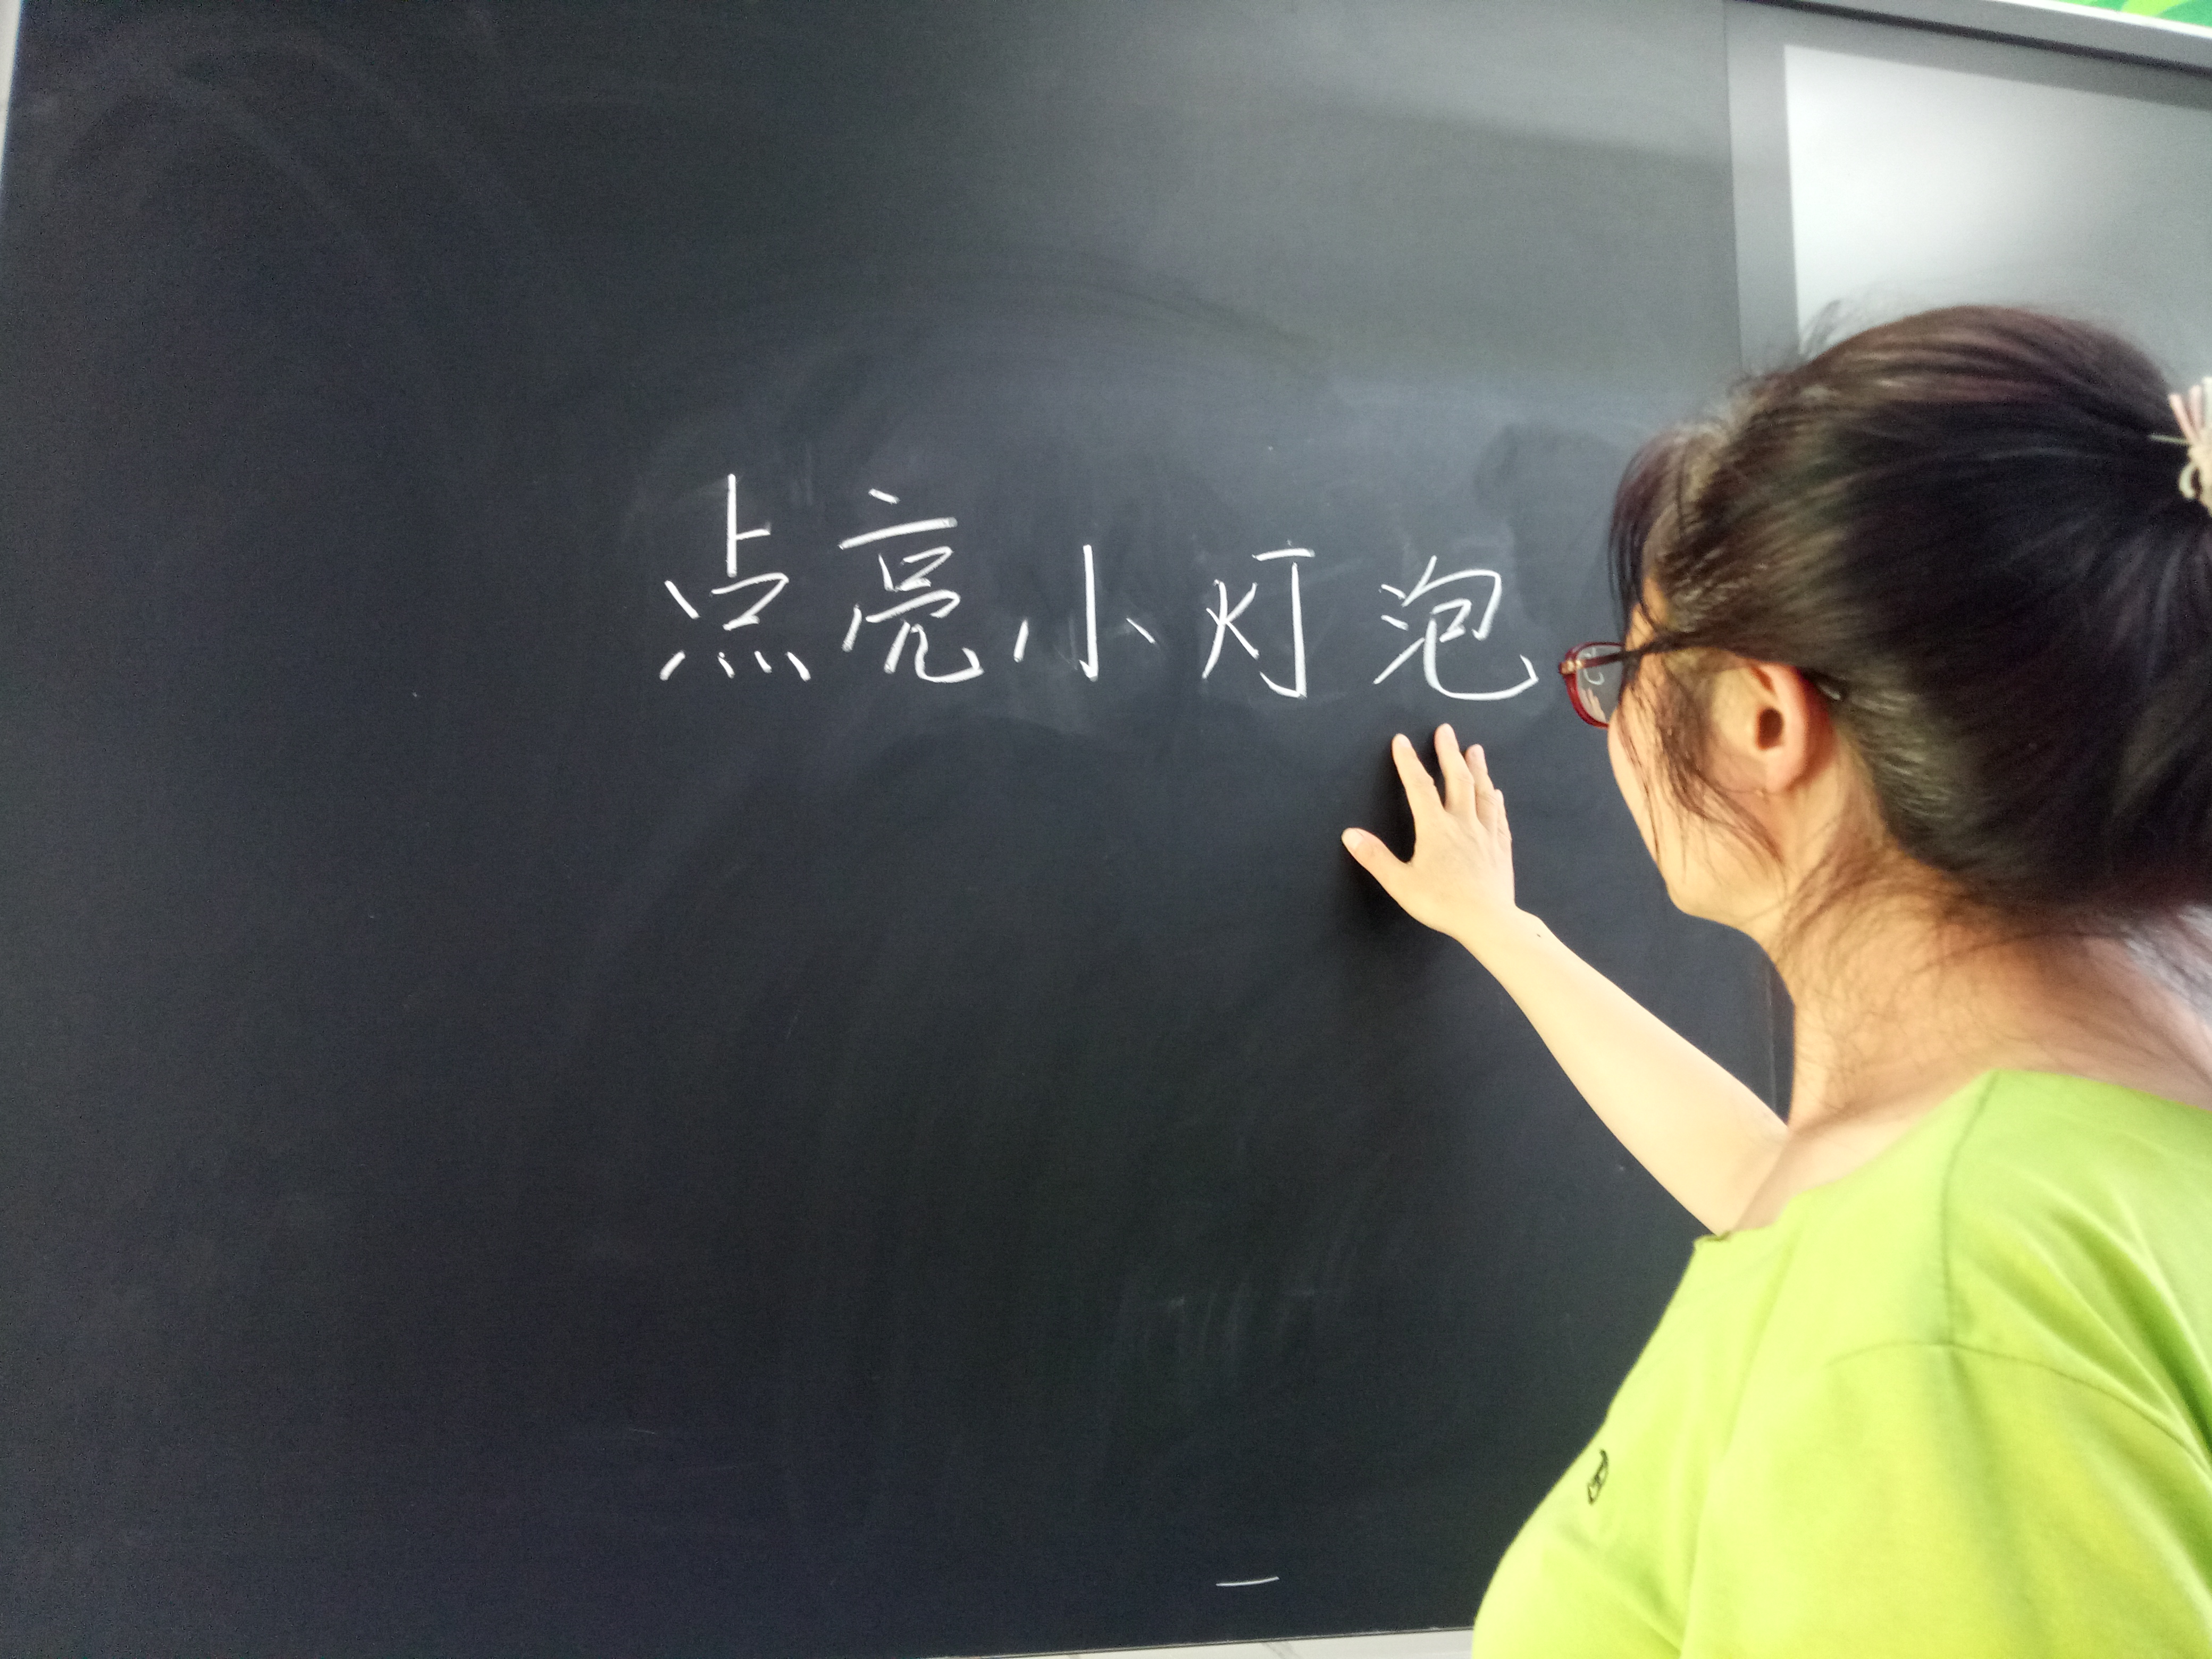 点亮小灯泡